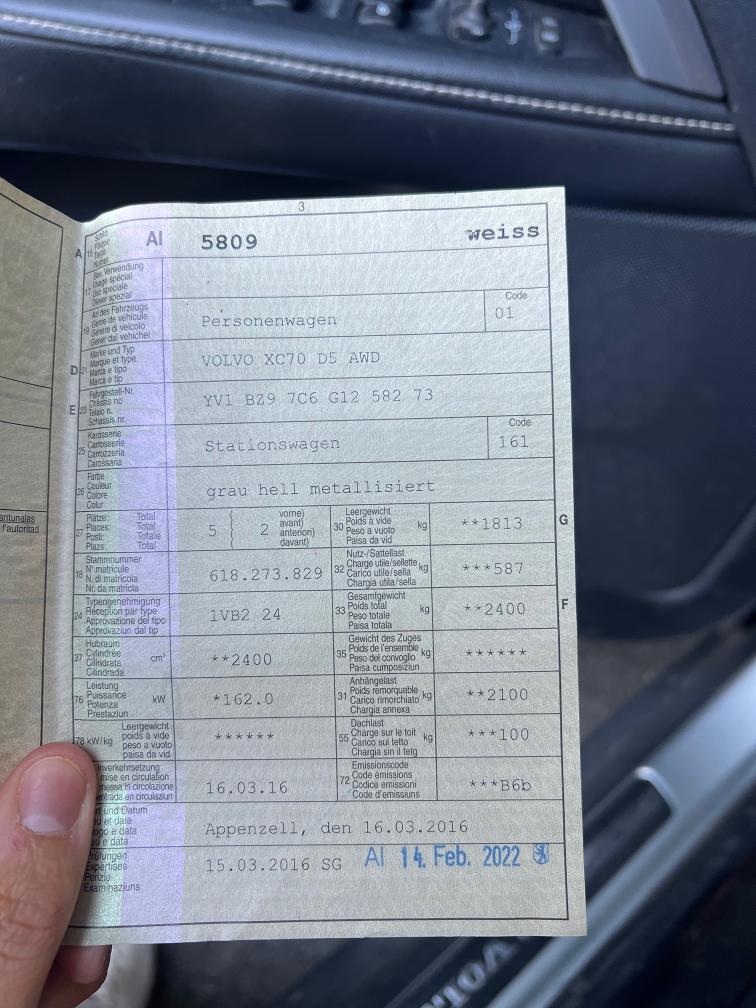 3
A 15 Schild Plaque Targa Numer AI 5809 weiss
17 Bes. Verwendung
Usage spécial
Uso speciale
Diever spezial
19 Art des Fahrzeugs
Genre de véhicule
Genere di veicolo
Gener dal vehichel
Personenwagen
Code
01
D 21 Marke und Typ
Marque et type
Marca e tipo
Marca e tip
VOLVO XC70 D5 AWD
E 23 Fahrgestell-Nr.
Châssis no
Telaio n.
Schassis nr.
YV1 BZ9 7C6 G12 582 73
25 Karosserie
Carrosserie
Carrozzeria
Carossaria
Stationswagen
Code
161
26 Farbe
Couleur
Colore
Colur
grau hell metallisiert
27 Plätze: Total
Places: Total
Posti: Totale
Plazs: Total
5 2
vorne)
avant)
anteriori)
davant)
30 Leergewicht
Poids à vide kg
Peso a vuoto
Paisa da vid
**1813
G
18 Stammnummer
N° matricule
N. di matricola
Nr. da matricla
618.273.829
32 Nutz-/Sattellast
Charge utile/sellette kg
Carico utile/sella
Chargia utila/sella
***587
24 Typengenehmigung
Réception par type
Approvazione del tipo
Approvaziun dal tip
1VB2 24
33 Gesamtgewicht
Poids total kg
Peso totale
Paisa totala
**2400
F
37 Hubraum
Cylindrée cm³
Cilindrata
Cilindrada
**2400
35 Gewicht des Zuges
Poids de l'ensemble kg
Peso del convoglio
Paisa cumposiziun
******
76 Leistung
Puissance kW
Potenza
Prestaziun
*162.0
31 Anhängelast
Poids remorquable kg
Carico rimorchiato
Chargia annexa
**2100
78 kW/kg Leergewicht
poids à vide
peso a vuoto
paisa da vid
******
55 Dachlast
Charge sur le toit kg
Carico sul tetto
Chargia sin il tetg
***100
nverkehrsetzung
mise en circulation
messa in circolazione
entrada en circulaziun
16.03.16
72 Emissionscode
Code émissions
Codice emissioni
Code d'emissiuns
***B6b
rt und Datum
u et date
ogo e data
u e data
Appenzell, den 16.03.2016
rüfungen
Expertises
Perizie
Examinaziuns
15.03.2016 SG AI 14. Feb. 2022
antunales
l'autoritad
VOLVO